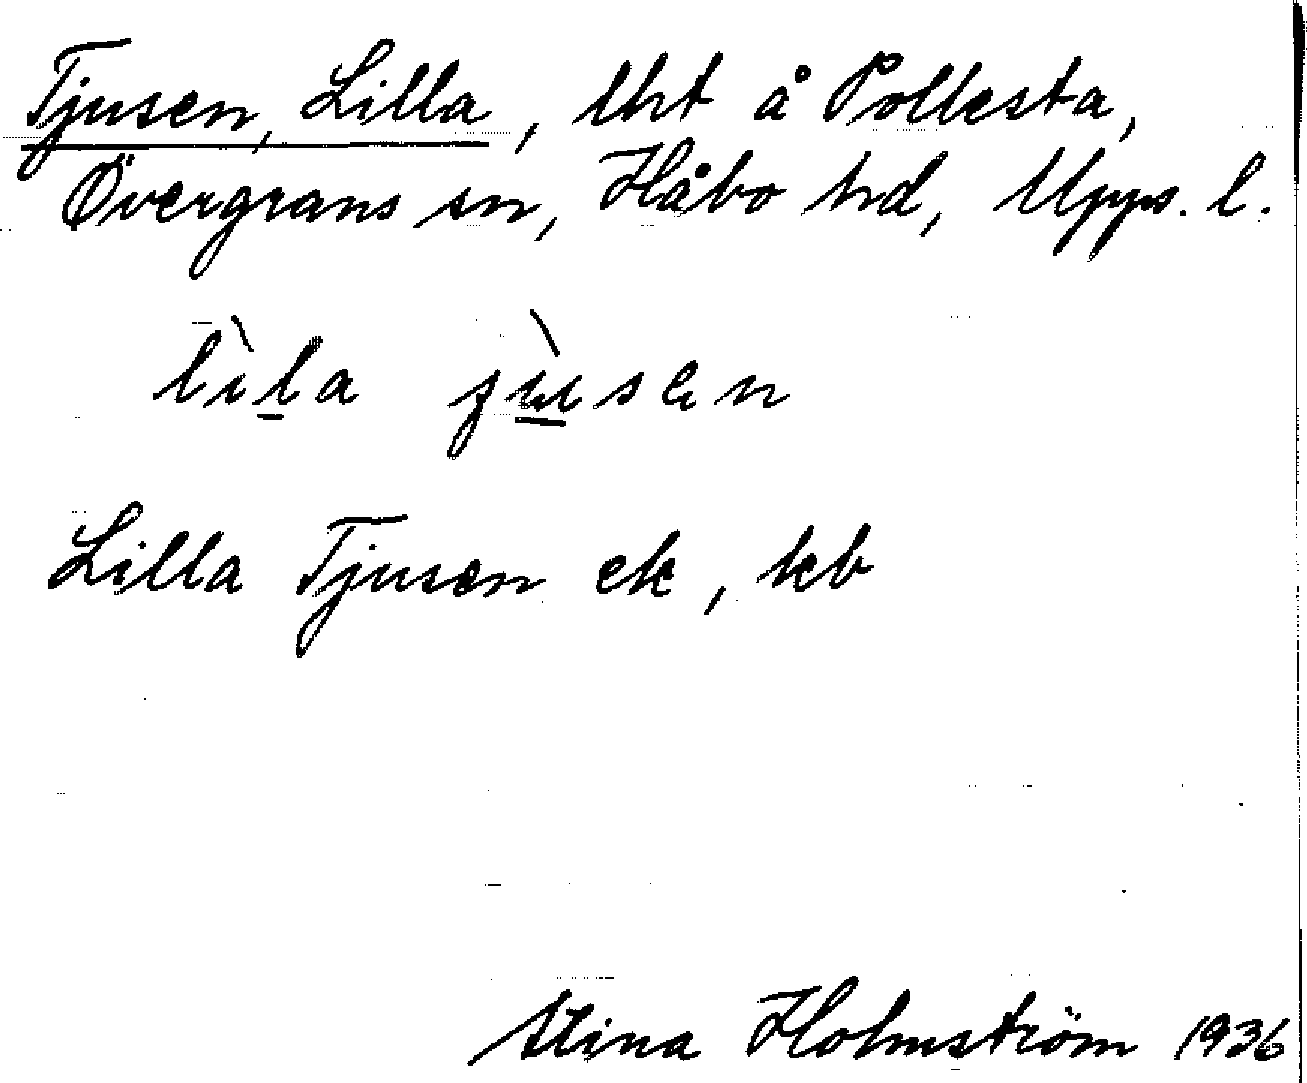 Tjusen, Lilla, lht å Pollesta,
Övergrans sn, Håbo hd, Upps. l.
lìla jùsen
Lilla Tjusen ek, kb
Stina Holmström 1936